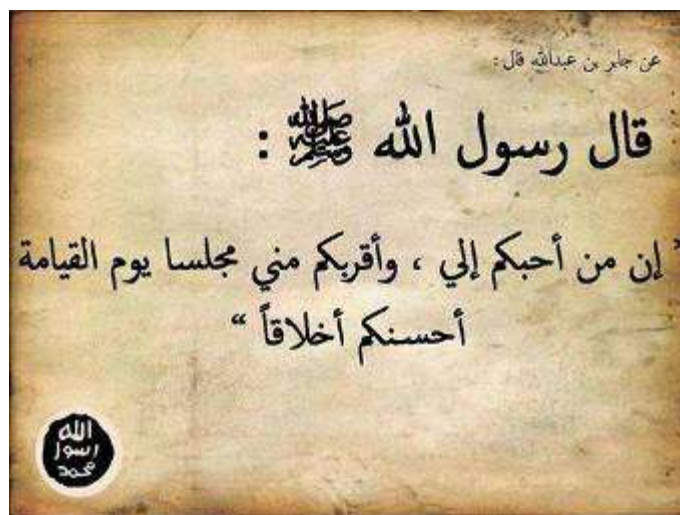 عن جابر بن عبدالله قال :
قال رسول الله ﷺ :
" إن من أحبكم إلي ، وأقربكم مني مجلسا يوم القيامة
أحسنكم أخلاقاً "
الله
رسول
محمد